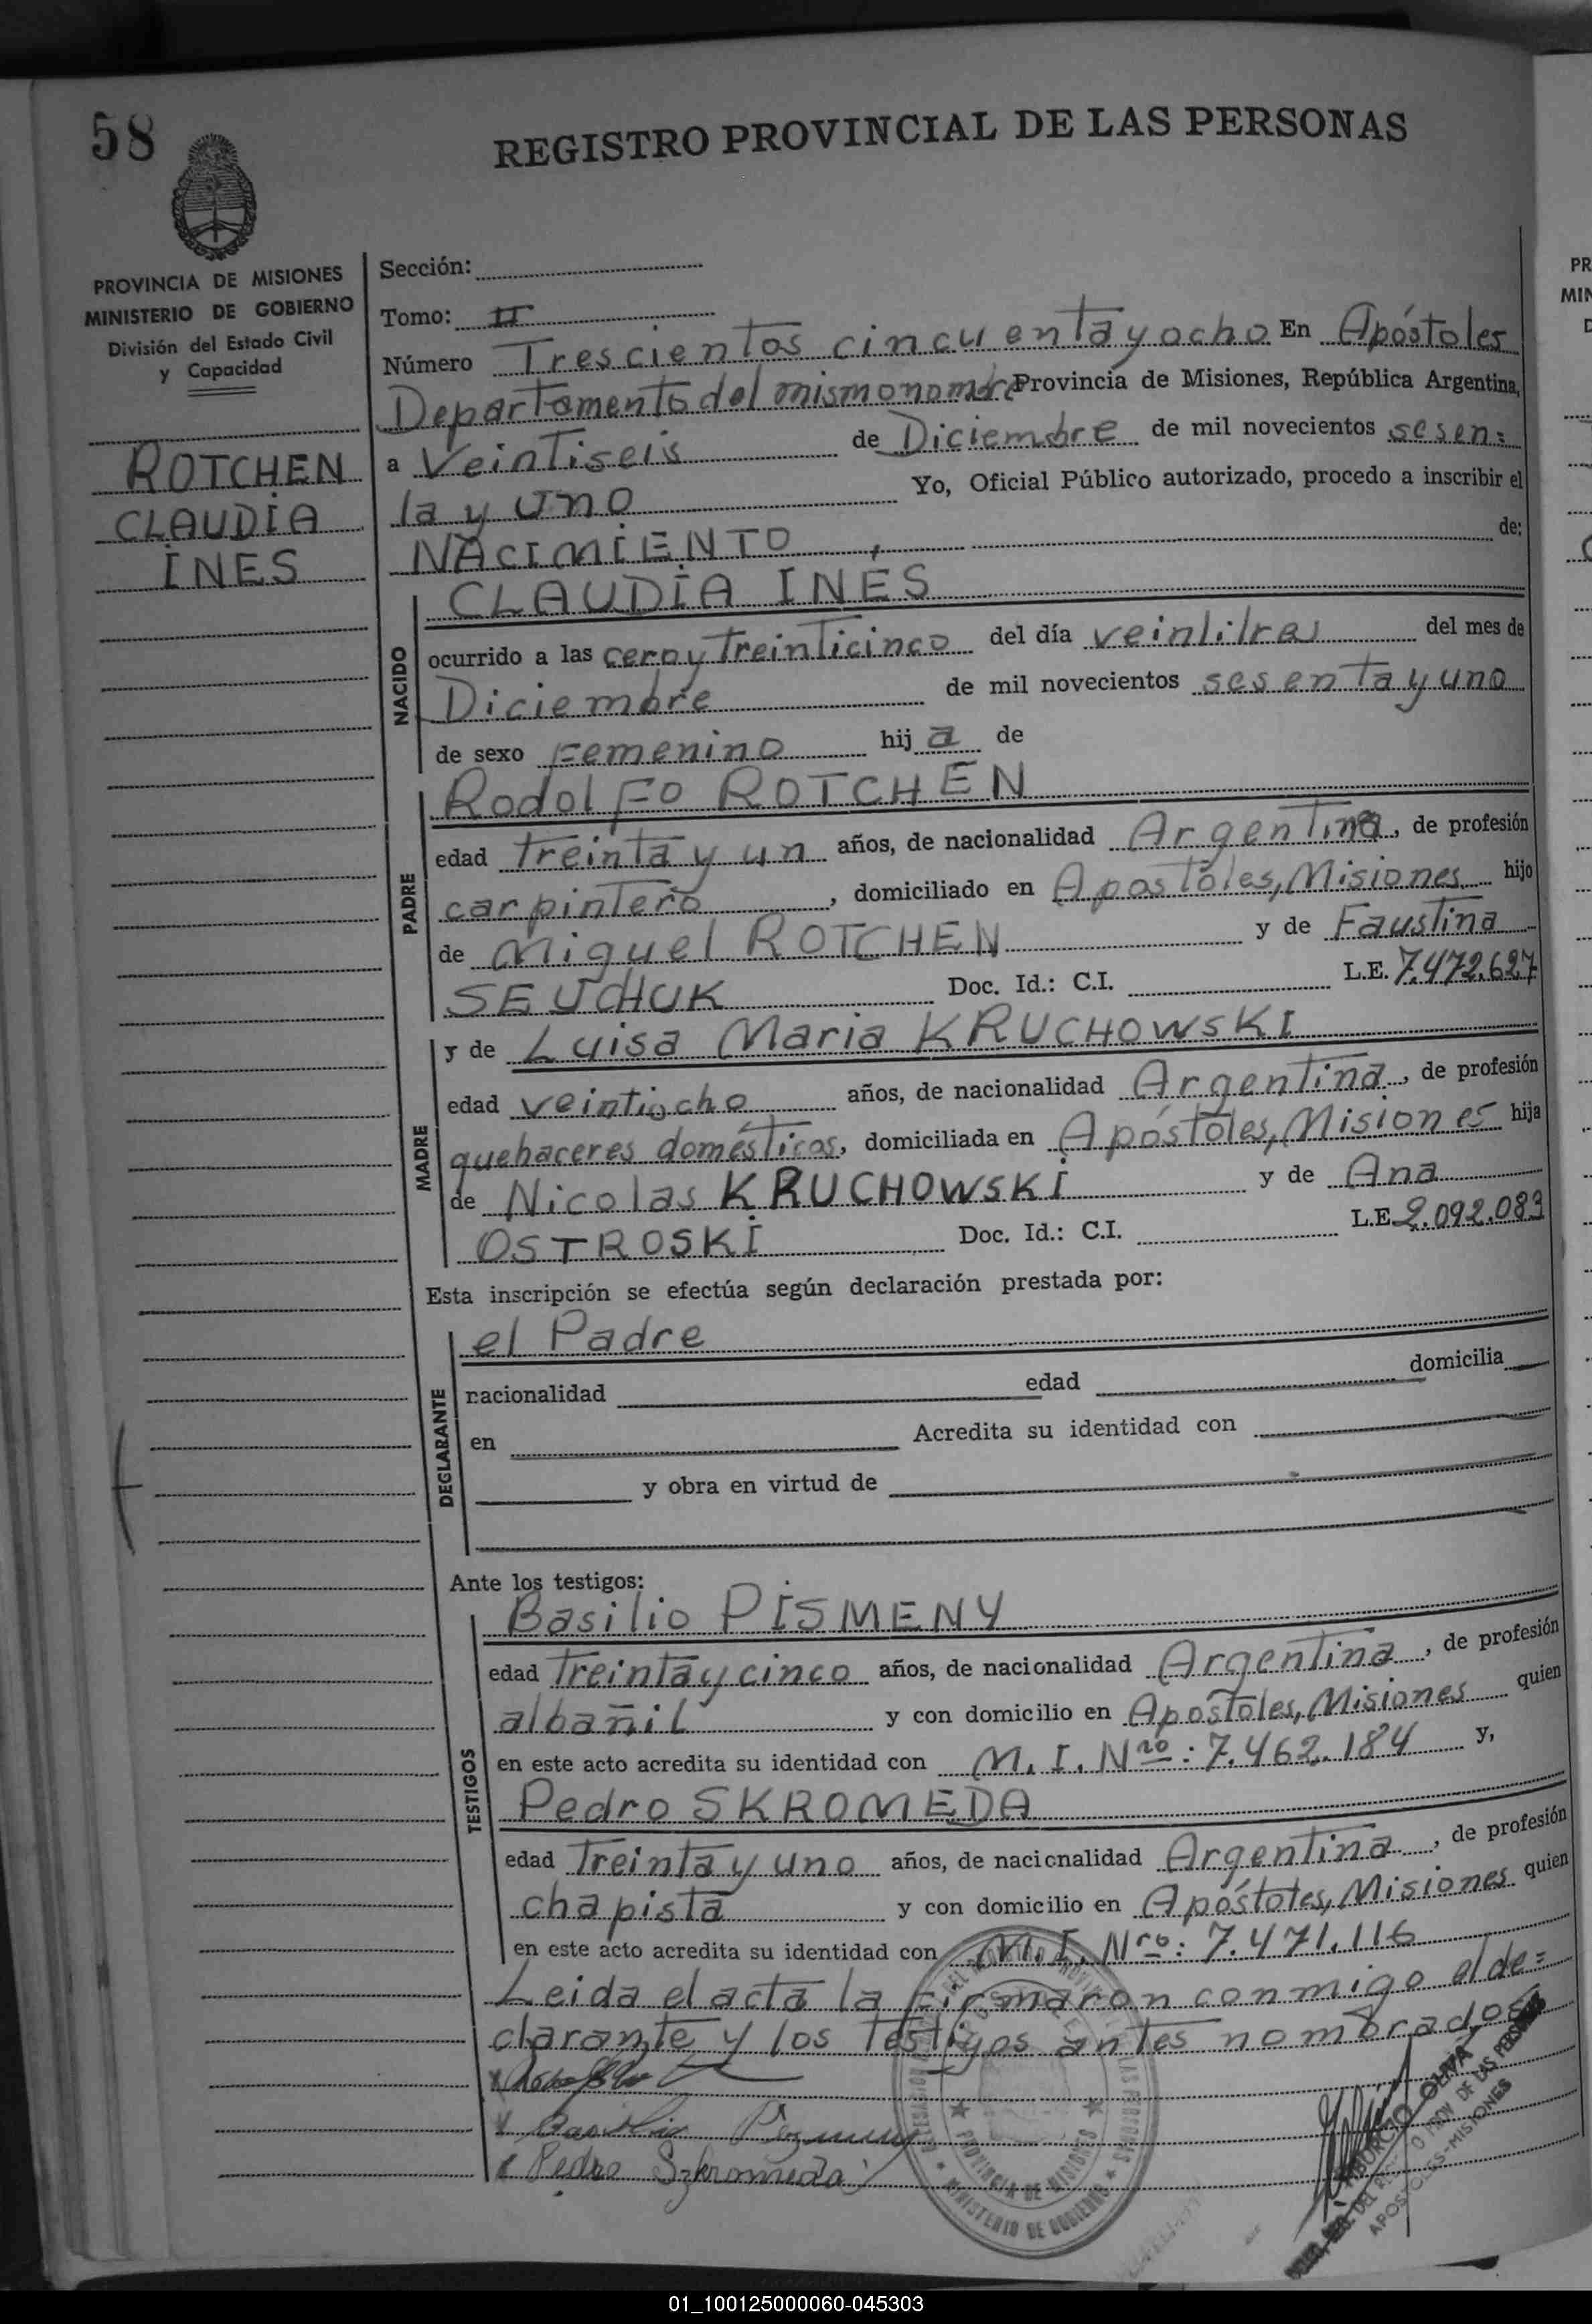 58
REGISTRO PROVINCIAL DE LAS PERSONAS
PROVINCIA DE MISIONES
MINISTERIO DE GOBIERNO
División del Estado Civil
y Capacidad
ROTCHEN
CLAUDIA
INES
Sección:
Tomo: II
Número Trescientos cincuenta y ocho En Apóstoles
Departamento del mismo nombre Provincia de Misiones, República Argentina,
a Veintiseis de Diciembre de mil novecientos sesen=
ta y uno Yo, Oficial Público autorizado, procedo a inscribir el
NACIMIENTO de:
NACIDO
CLAUDIA INES
ocurrido a las cero y treinticinco del día veintitres del mes de
Diciembre de mil novecientos sesenta y uno
de sexo Femenino hija de
PADRE
Rodolfo ROTCHEN
edad treinta y un años, de nacionalidad Argentina, de profesión
carpintero, domiciliado en Apostóles, Misiones hijo
de Miguel ROTCHEN y de Faustina
SEUCHUK Doc. Id.: C.I. L.E. 7.472.627
MADRE
y de Luisa Maria KRUCHOWSKI
edad veintiocho años, de nacionalidad Argentina, de profesión
quehaceres domésticos, domiciliada en Apóstoles, Misiones hija
de Nicolas KRUCHOWSKI y de Ana
OSTROSKI Doc. Id.: C.I. L.E. 2.092.083
Esta inscripción se efectúa según declaración prestada por:
DECLARANTE
el Padre
nacionalidad edad domicilia
en Acredita su identidad con
y obra en virtud de
Ante los testigos:
TESTIGOS
Basilio PISMENY
edad Treinta y cinco años, de nacionalidad Argentina, de profesión
albañil y con domicilio en Apóstoles, Misiones quien
en este acto acredita su identidad con M. I. Nro: 7.462.184 y,
Pedro SKROMEDA
edad Treinta y uno años, de nacionalidad Argentina, de profesión
chapista y con domicilio en Apóstoles, Misiones quien
en este acto acredita su identidad con M. I. Nro: 7.471.116
Leida el acta la firmaron conmigo el de=
clarante y los testigos antes nombrados
Basilio
Pedro Szkromeda
PROVINCIA DE MISIONES
MINISTERIO DE GOBIERNO
OLIVA
APOSTOLES-MISIONES
01_100125000060-045303